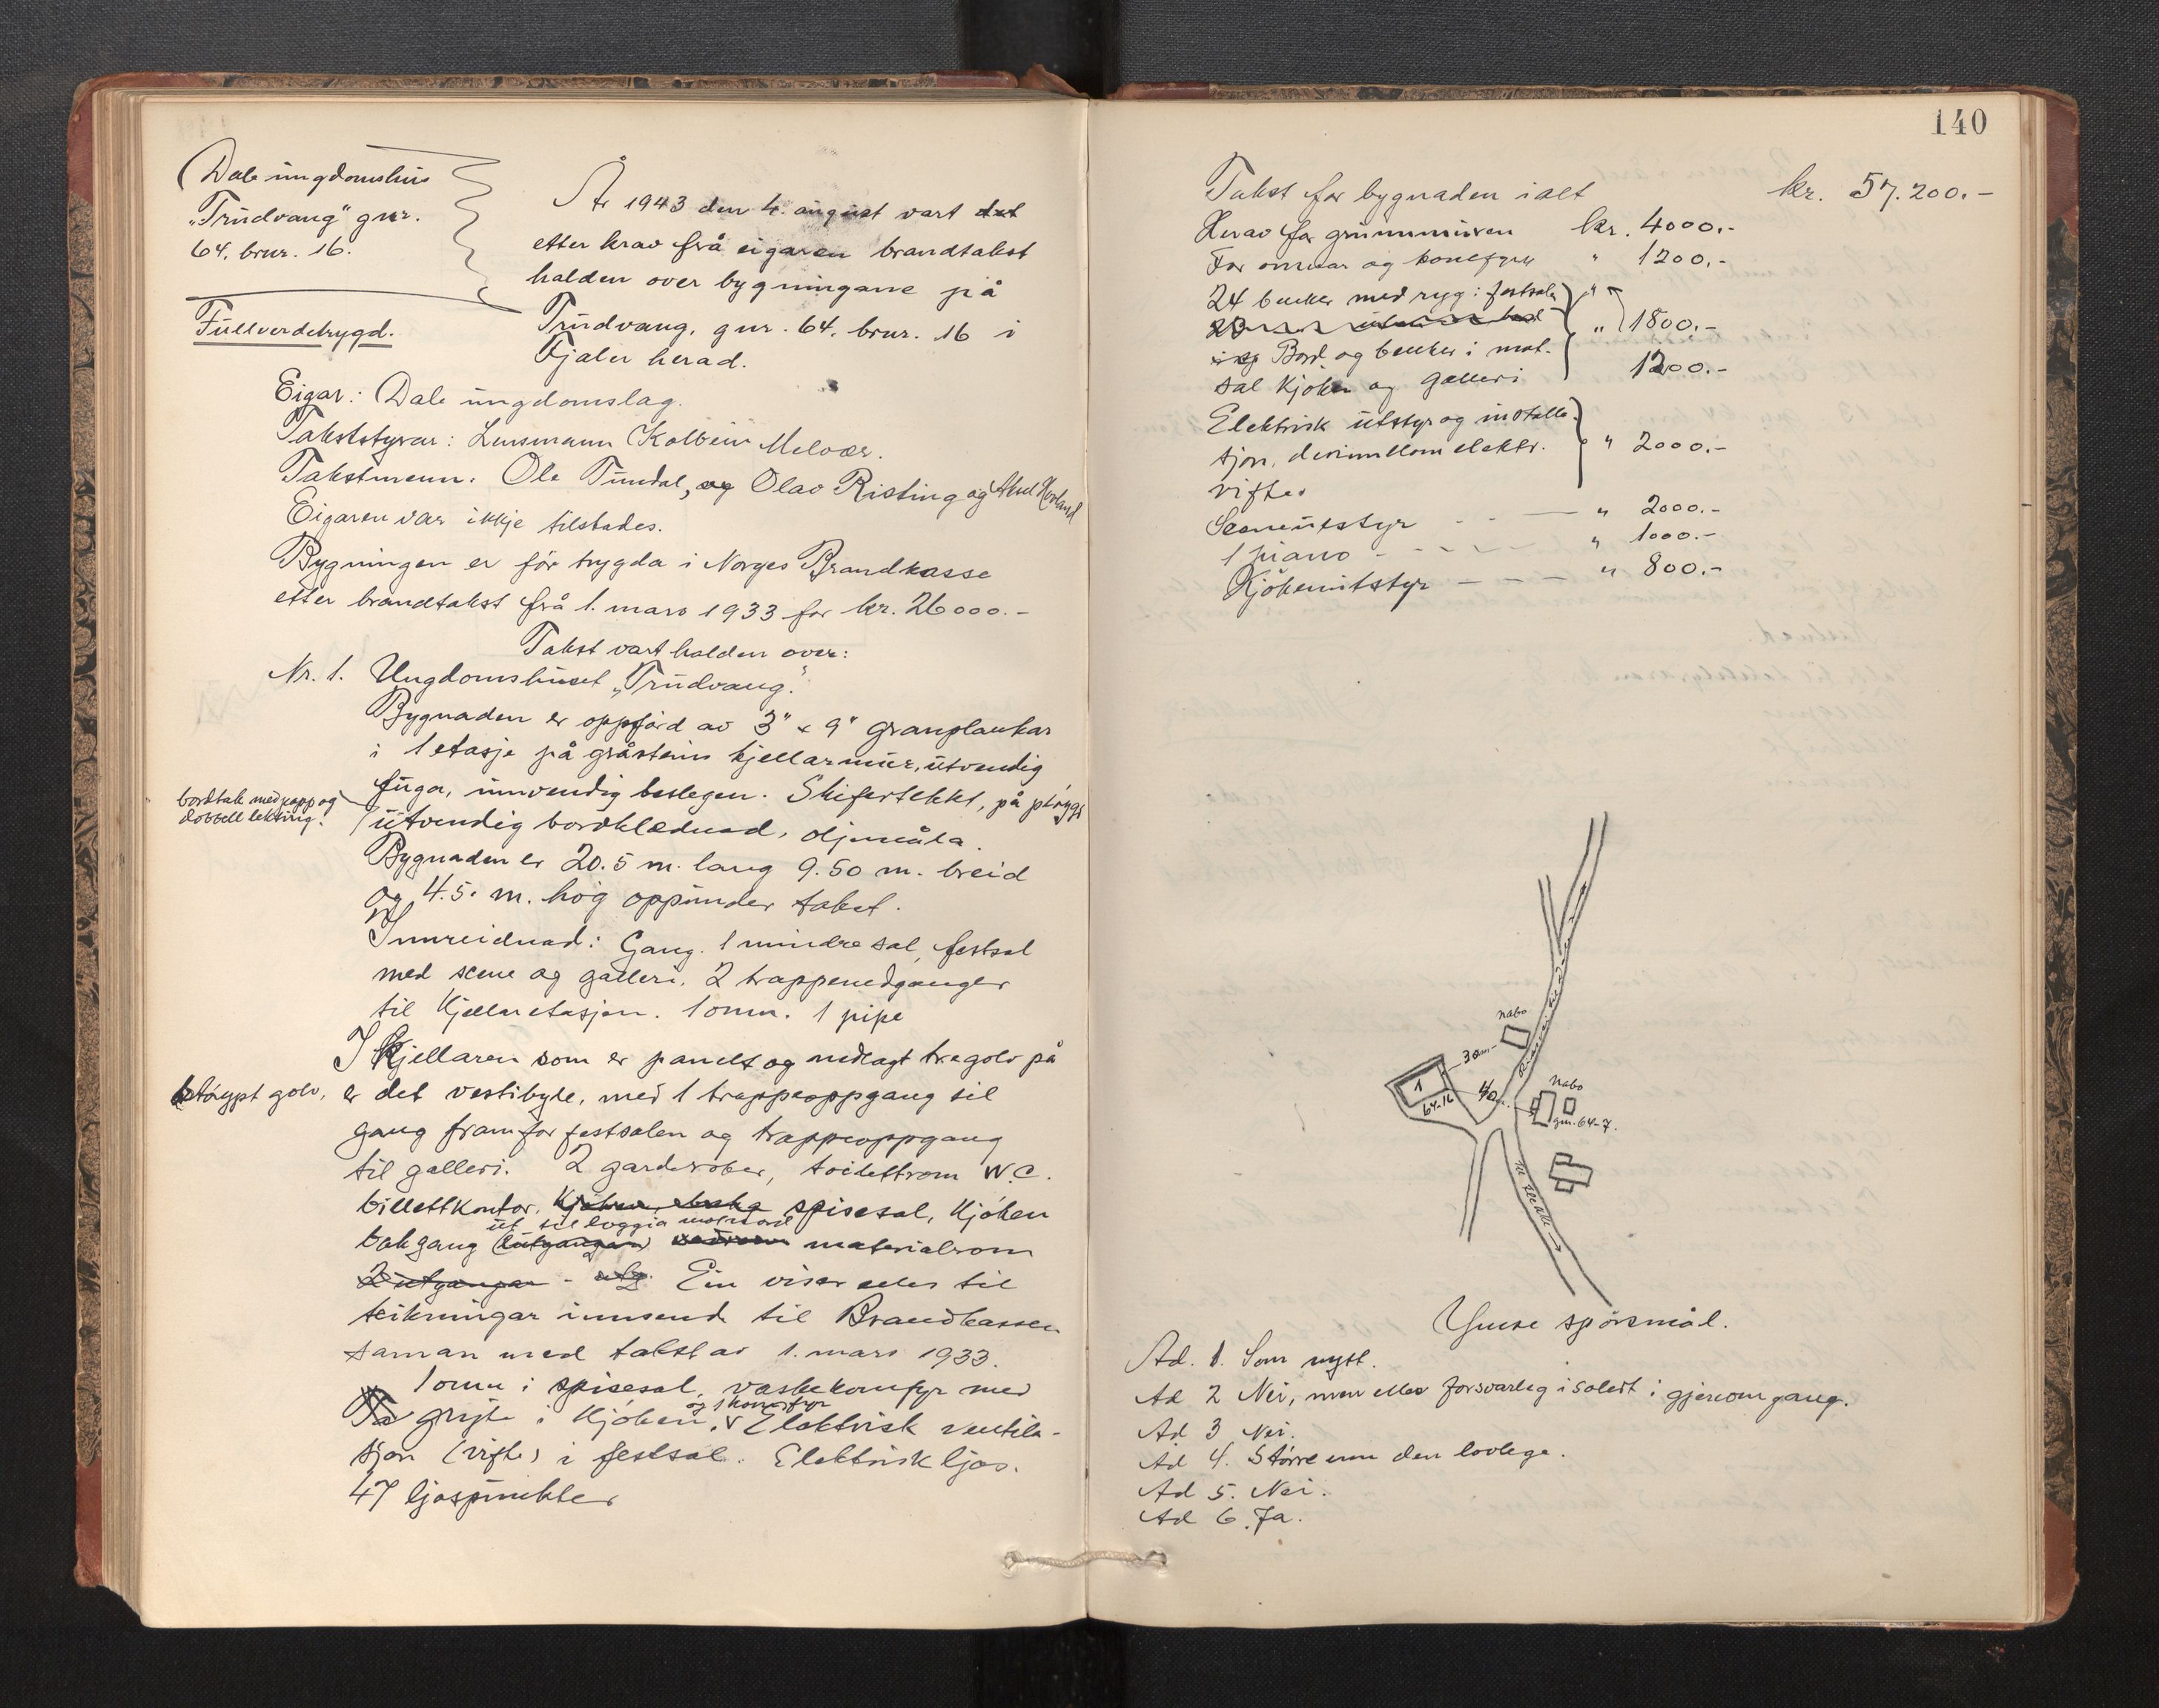 Dale ungdomshus
"Trudvang" gnr.
64. brnr. 16.
Fullverdetrygd.
År 1943 den 4. august vart det
etter krav frå eigaren brandtakst
halden over bygningane på
Trudvang, gnr. 64, brnr. 16 i
Fjaler herad.
Eigar: Dale ungdomslag.
Takststyrar: Lensmann Kolbein Melvær.
Takstmenn: Ole Tundal, og Olav Risting og Hovland
Eigaren var ikkje tilstades.
Bygningen er før trygda i Norges Brandkasse
etter brandtakst frå 1. mars 1933 for kr. 26000.-
Takst vart halden over:
Nr. 1. Ungdomshuset "Trudvang".
Bygnaden er oppførd av 3" x 9" granplankar
i 1 etasje på gråsteins kjellarmur, utvendig
fuga, innvendig beslegen. Skifertekkt, på
bordtak med papp og
dobbell lekting.
utvendig bordklædnad, oljemåla.
Bygnaden er 20.5 m. lang 9.50 m. breid
og 4.5. m. høg oppunder taket.
Innreidnad: Gang. 1 mindre sal, festsal
med scene og galleri. 2 trappenedganger
til Kjellaretasjen. 1 omn. 1 pipe
I Kjellaren som er panelt og nedlagt tregolv på
støypt golv, er det vestibyle, med 1 trappeoppgang til
gang framfor festsalen og trappeoppgang
til galleri. 2 garderober, toilettrom W.C.
billettkontor, spisesal, Kjøken
ut til loggia
bakgang (utgangen) materialrom
2 utgangar - Ein viser elles til
teikningar innsend til Brandkassen
saman med takst av 1. mars 1933.
1 omn i spisesal, vaskekomfyr med
og 1 komfyr
gryte i Kjøken. Elektrisk ventila-
sjon (vifte) i festsal. Elektrisk ljos.
47 ljospunkter
140
Takst for bygnaden i alt kr. 57.200.-
Herav for grunnmuren kr. 4000.-
For omnar og komfyrer " 1200.-
24 benker med ryg i festsalen "
" 1800.-
Bord og benker i mat-
sal Kjøken og galleri 1200.-
Elektrisk utstyr og installa-
sjon, derimellom elektr. " 2000.-
vifter
Sceneutstyr - - — " 2000.-
1 piano - - - - " 1000.-
Kjøkenutstyr - - - " 800.-
nabo
30 m.
1
64-16
40 m.
nabo
gnr. 64-7.
Ymse spørsmål.
Ad. 1. Som nytt.
Ad 2 Nei, men elles forsvarleg isolert i gjenomgang.
Ad 3 Nei.
Ad 4. Større enn den lovlege.
Ad 5. Nei.
Ad 6. Ja.